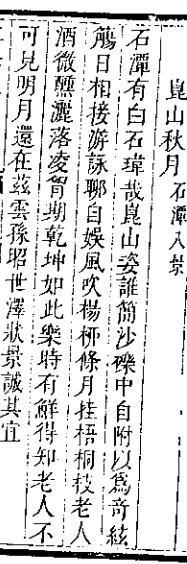 崑山秋月 石潭八景
石潭有白石瑋哉崑山姿誰簡沙礫中自附以爲奇絃
觴日相接游詠聊自娛風吹楊柳條月挂梧桐枝老人
酒微醺灑落凌曾期乾坤如此樂時有鮮得知老人不
可見明月還在茲雲孫昭世澤狀景誠其宜